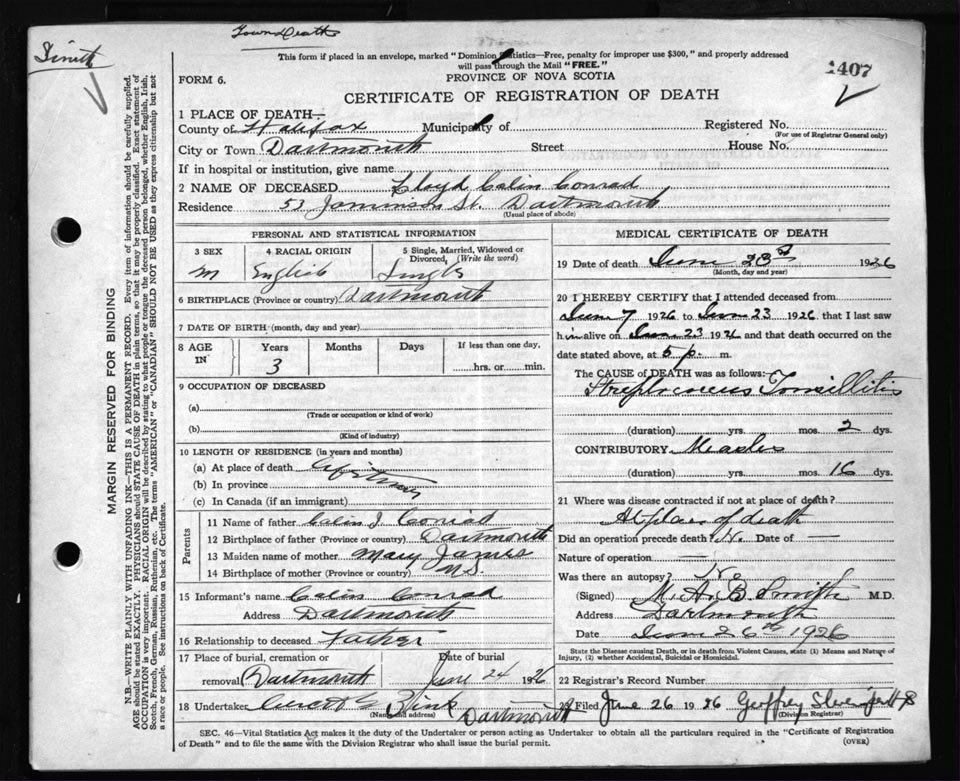 Town Death
This form if placed in an envelope, marked "Dominion Statistics—Free, penalty for improper use $300," and properly addressed
will pass through the Mail "FREE."
FORM 6.
PROVINCE OF NOVA SCOTIA
1407
CERTIFICATE OF REGISTRATION OF DEATH
1 PLACE OF DEATH—
County of Halifax Municipality of Registered No.
(For use of Registrar General only)
City or Town Dartmouth Street House No.
If in hospital or institution, give name
2 NAME OF DECEASED Lloyd Colin Conrad
Residence 53 St. Dartmouth
(Usual place of abode)
PERSONAL AND STATISTICAL INFORMATION
3 SEX 4 RACIAL ORIGIN 5 Single, Married, Widowed or
Divorced, (Write the word)
M English Single
6 BIRTHPLACE (Province or country) Dartmouth
7 DATE OF BIRTH (month, day and year)
8 AGE IN Years Months Days If less than one day,
3 hrs. or min.
9 OCCUPATION OF DECEASED
(a)
(Trade or occupation or kind of work)
(b)
(Kind of industry)
10 LENGTH OF RESIDENCE (in years and months)
(a) At place of death
(b) In province
(c) In Canada (if an immigrant)
Parents
11 Name of father Colin J Conrad
12 Birthplace of father (Province or country) Dartmouth
13 Maiden name of mother Mary James
14 Birthplace of mother (Province or country) N.S.
15 Informant's name Colin Conrad
Address Dartmouth
16 Relationship to deceased Father
17 Place of burial, cremation or Date of burial
removal Dartmouth June 24 1926
18 Undertaker Zink Dartmouth
(Name and address)
MEDICAL CERTIFICATE OF DEATH
19 Date of death June 23rd 1926
(Month, day and year)
20 I HEREBY CERTIFY that I attended deceased from
June 7 1926 to June 23 1926 that I last saw
him alive on June 23 1926 and that death occurred on the
date stated above, at 5 p. m.
The CAUSE of DEATH was as follows:
Streptococcus Tonsillitis
(duration) yrs. mos. 2 dys.
CONTRIBUTORY Measles
(duration) yrs. mos. 16 dys.
21 Where was disease contracted if not at place of death?
At place of death
Did an operation precede death? No. Date of —
Nature of operation —
Was there an autopsy? No
(Signed) M. A. B. Smith M.D.
Address Dartmouth
Date June 26th 1926
State the Disease causing Death, or in death from Violent Causes, state (1) Means and Nature of
Injury, (2) whether Accidental, Suicidal or Homicidal.
22 Registrar's Record Number
23 Filed June 26 1926 Geoffrey
(Division Registrar)
SEC. 46—Vital Statistics Act makes it the duty of the Undertaker or person acting as Undertaker to obtain all the particulars required in the "Certificate of Registration
of Death" and to file the same with the Division Registrar who shall issue the burial permit.
(OVER)
MARGIN RESERVED FOR BINDING
N.B.—WRITE PLAINLY WITH UNFADING INK—THIS IS A PERMANENT RECORD. Every item of information should be carefully supplied.
AGE should be stated EXACTLY. PHYSICIANS should STATE CAUSE OF DEATH in plain terms, so that it may be properly classified. Exact statement of
OCCUPATION is very important. RACIAL ORIGIN will be described by stating to what people or tongue the deceased person belonged, whether English, Irish,
Scotch, French, German, Russian, Ruthenian, etc. The terms "AMERICAN" or "CANADIAN" SHOULD NOT BE USED as they express citizenship but not
a race or people. See instructions on back of Certificate.